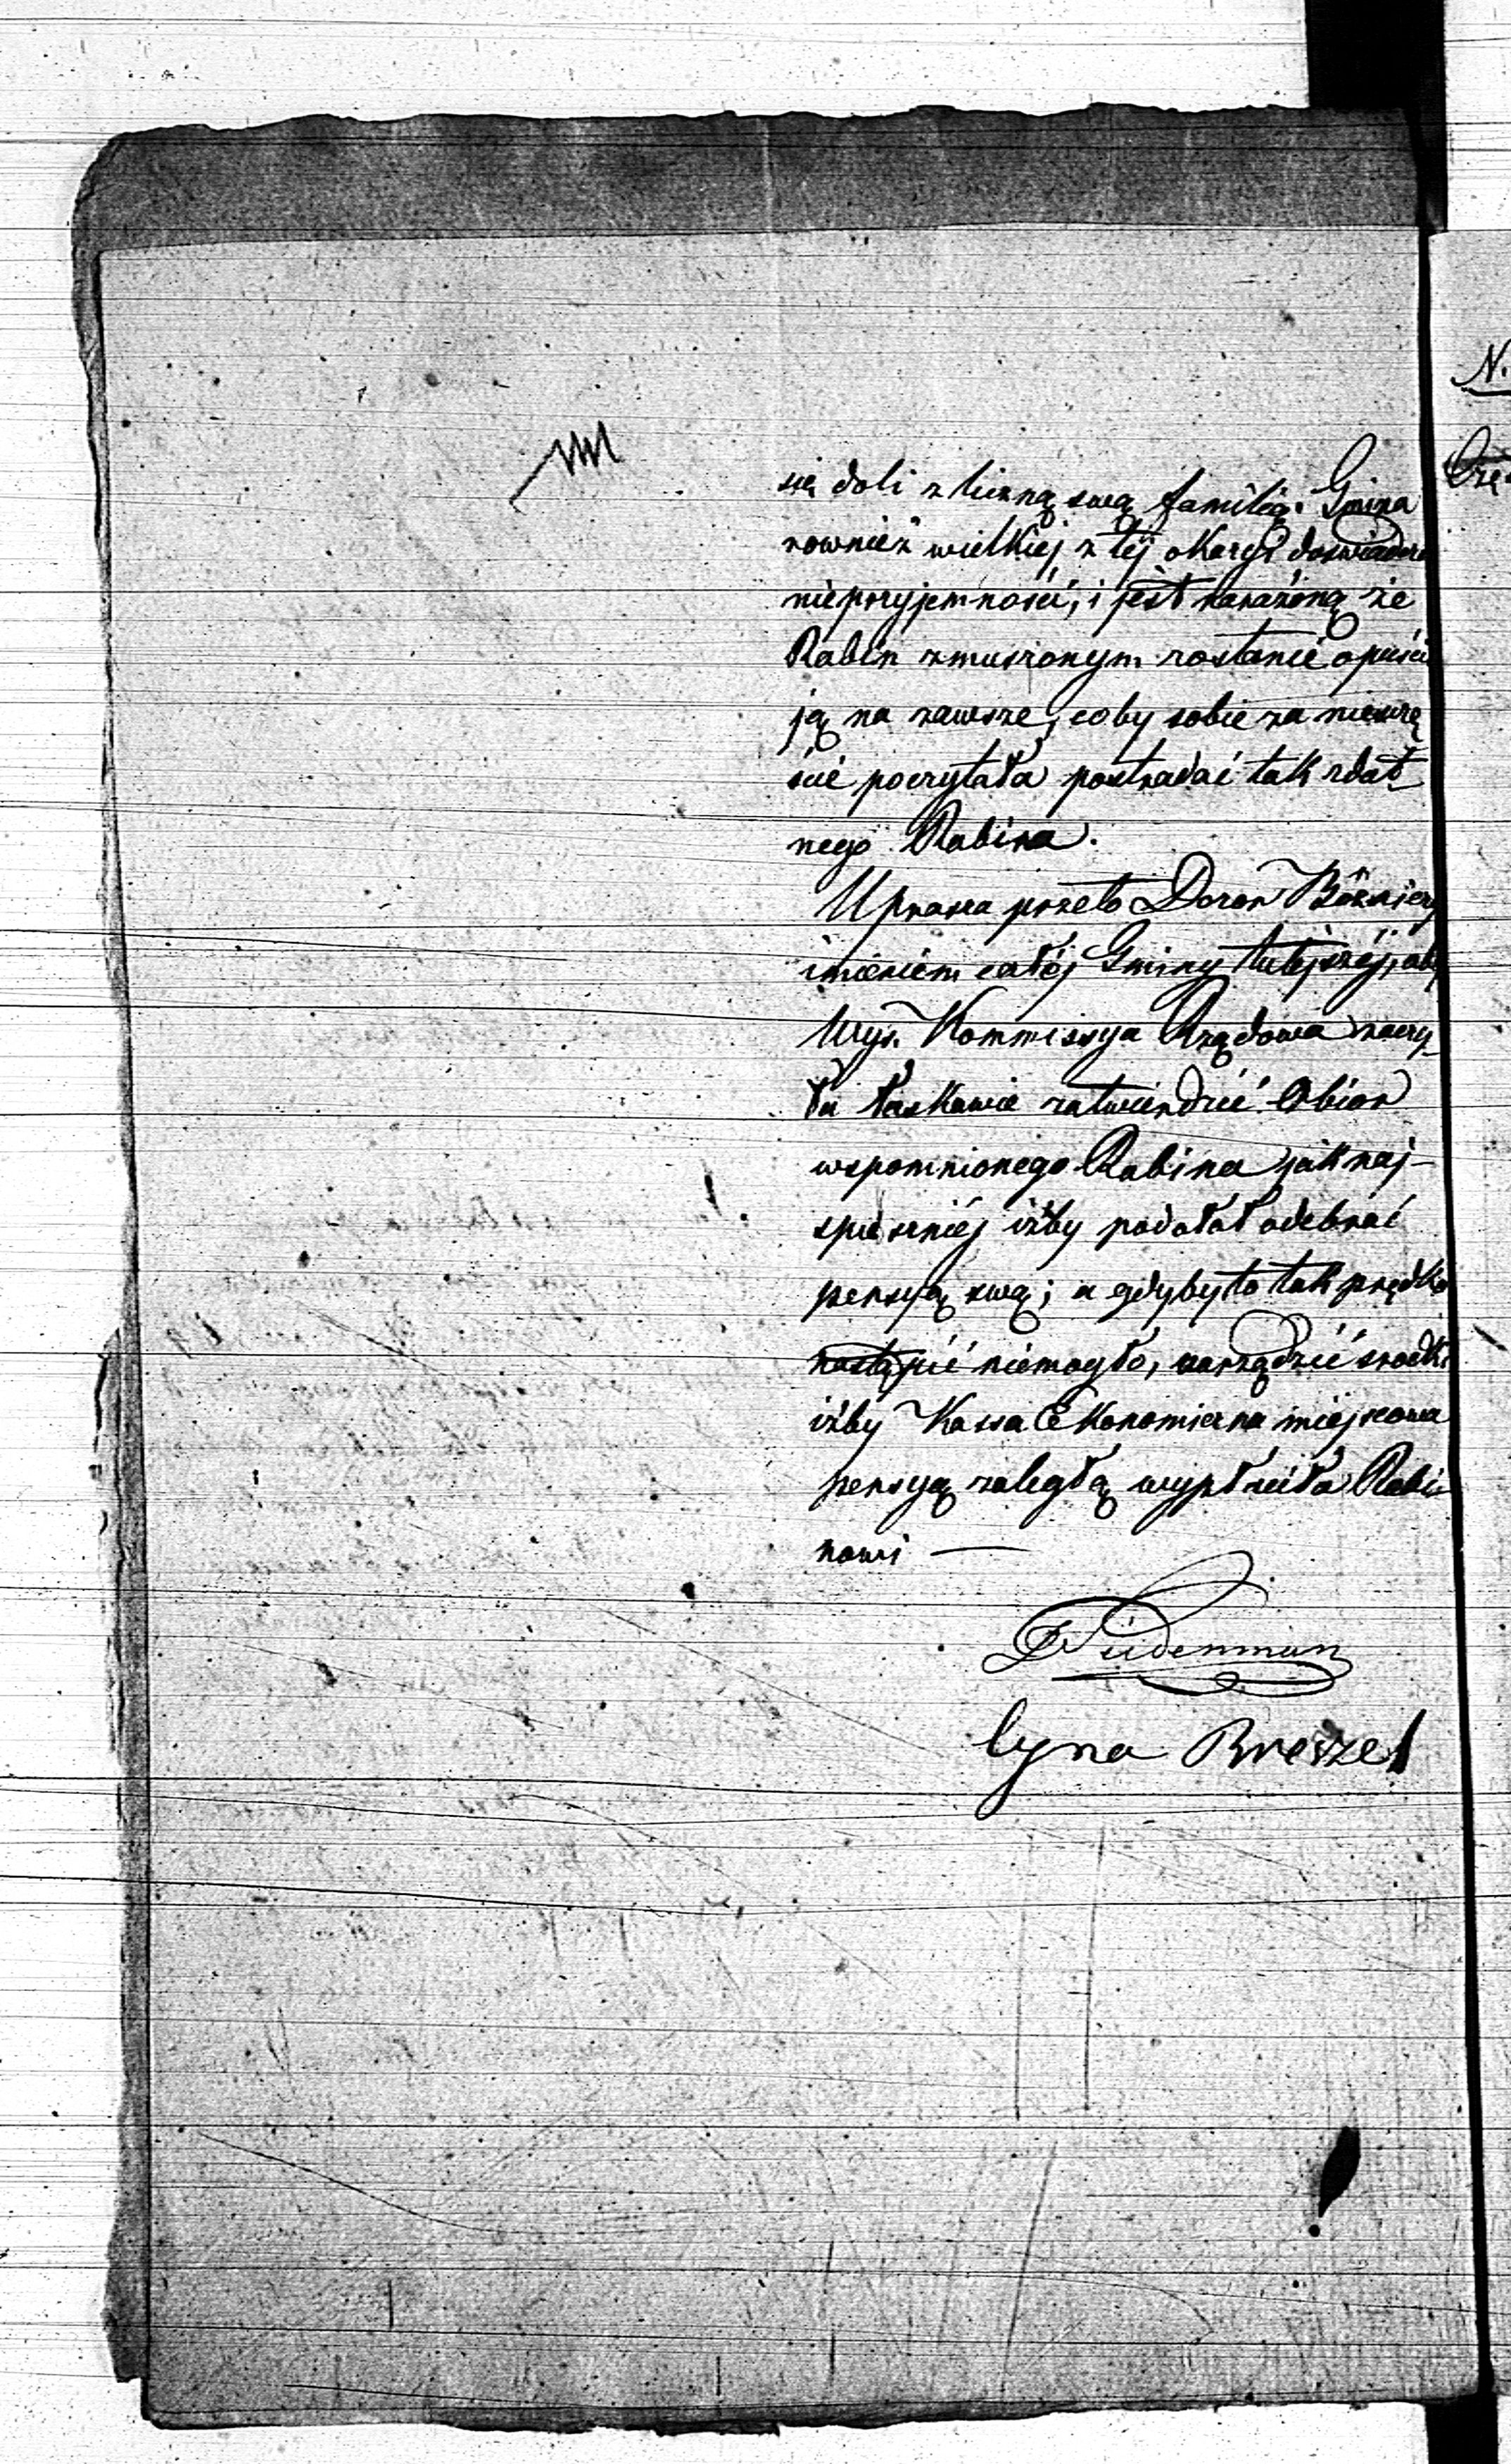 się doli z liczną swą familią. Gmina
rownież wielkiej z tej okazyi doświadcza
nieprzyjemności, i jest narażoną że
Rabin zmuszonym zostanie opuścić
ją na zawsze, coby sobie za nieszczę
ście poczytała postradać tak zdat-
nego Rabina.
Uprasza przeto Dozor Bóżniczy
imieniem całej Gminy tutejszéj, aby
Wys. Kommissya Rządowa raczy-
ła łaskawie zatwierdzić Obior
wspomnionego Rabina jak naj-
spieszniéj iżby podołał odebrać
pensyą swą; a gdyby to tak prędko
nastąpić niemogło, zarządzić środki
iżby Kassa Ekonomiczna miejscowa
pensyą zaległą wypłaciła Rabi-
nowi —
Cyna Breszel
N.